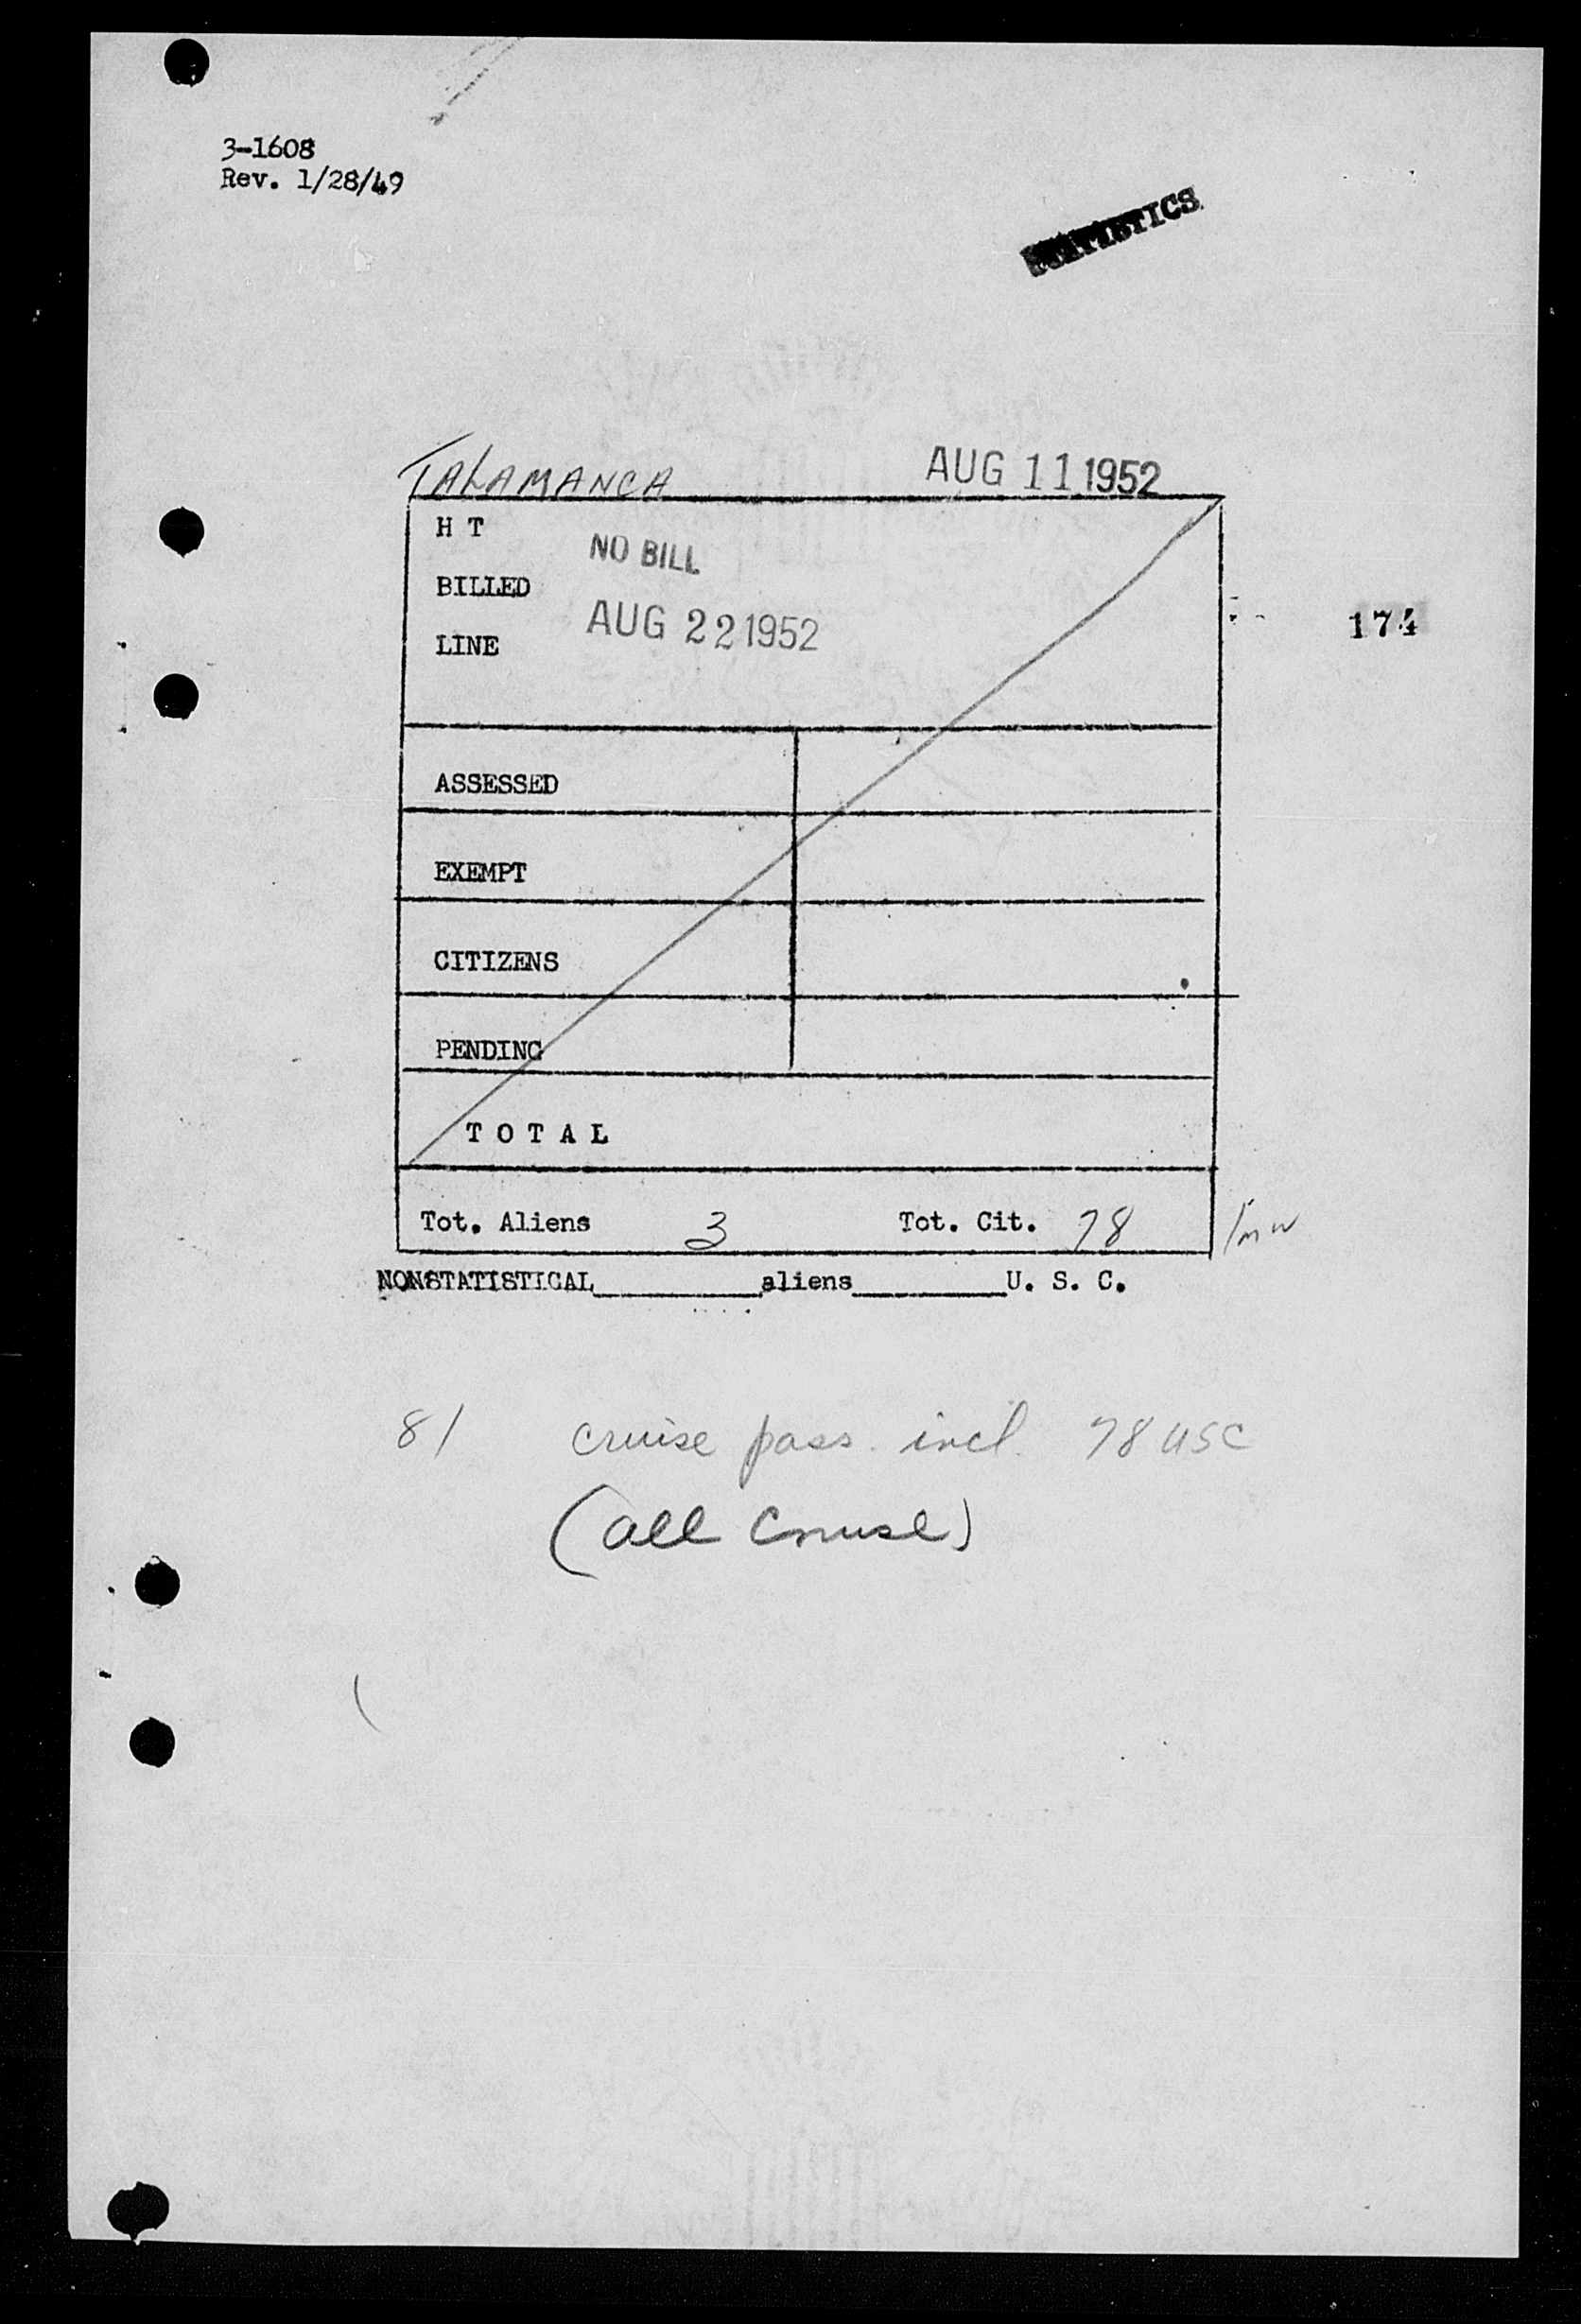 3-1608
Rev. 1/28/49
STATISTICS
TALAMANCA AUG 11 1952
H T
NO BILL
BILLED
AUG 22 1952
LINE
174
ASSESSED
EXEMPT
CITIZENS
PENDING
T O T A L
Tot. Aliens 3 Tot. Cit. 78
NONSTATISTICAL__________aliens_________U. S. C.
81 cruise pass. incl. 78 USC
(all Cruise)